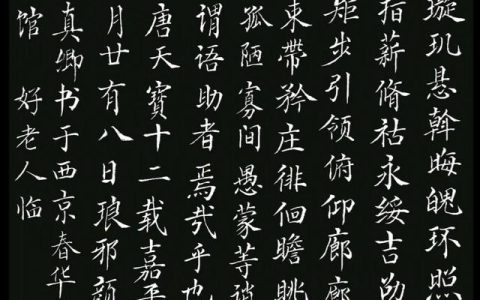 璇玑悬斡晦魄环照
指薪脩祜永绥吉劭
矩步引领俯仰廊
束帶矜庄徘徊瞻眺
孤陋寡闻愚蒙等诮
谓语助者焉哉乎也
唐天寶十二载嘉平
月廿有八日琅邪颜
真卿书于西京春华
馆 好老人临